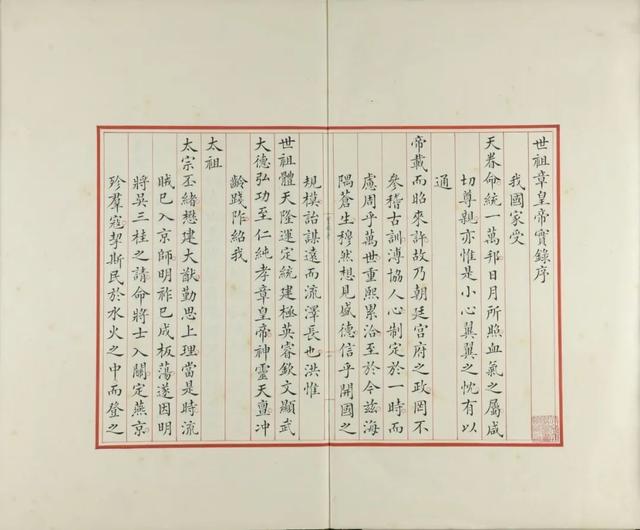 世祖章皇帝實錄序
我國家受
天眷命統一萬邦日月所照血氣之屬咸
切尊親亦惟是小心翼翼之忱有以
通
帝載而昭來許故乃朝廷宮府之政罔不
參稽古訓溥協人心制定於一時而
慮周乎萬世重熙累洽至於今茲海
隅蒼生穆然想見盛德信乎開國之
規模詒謀遠而流澤長也洪惟
世祖體天隆運定統建極英睿欽文顯武
大德弘功至仁純孝章皇帝神靈天亶沖
齡踐阼紹我
太祖
太宗丕緒懋建大猷勤思上理當是時流
賊已入京師明祚已成板蕩遂因明
將吳三桂之請命將士入關定燕京
殄羣寇挈斯民於水火之中而登之